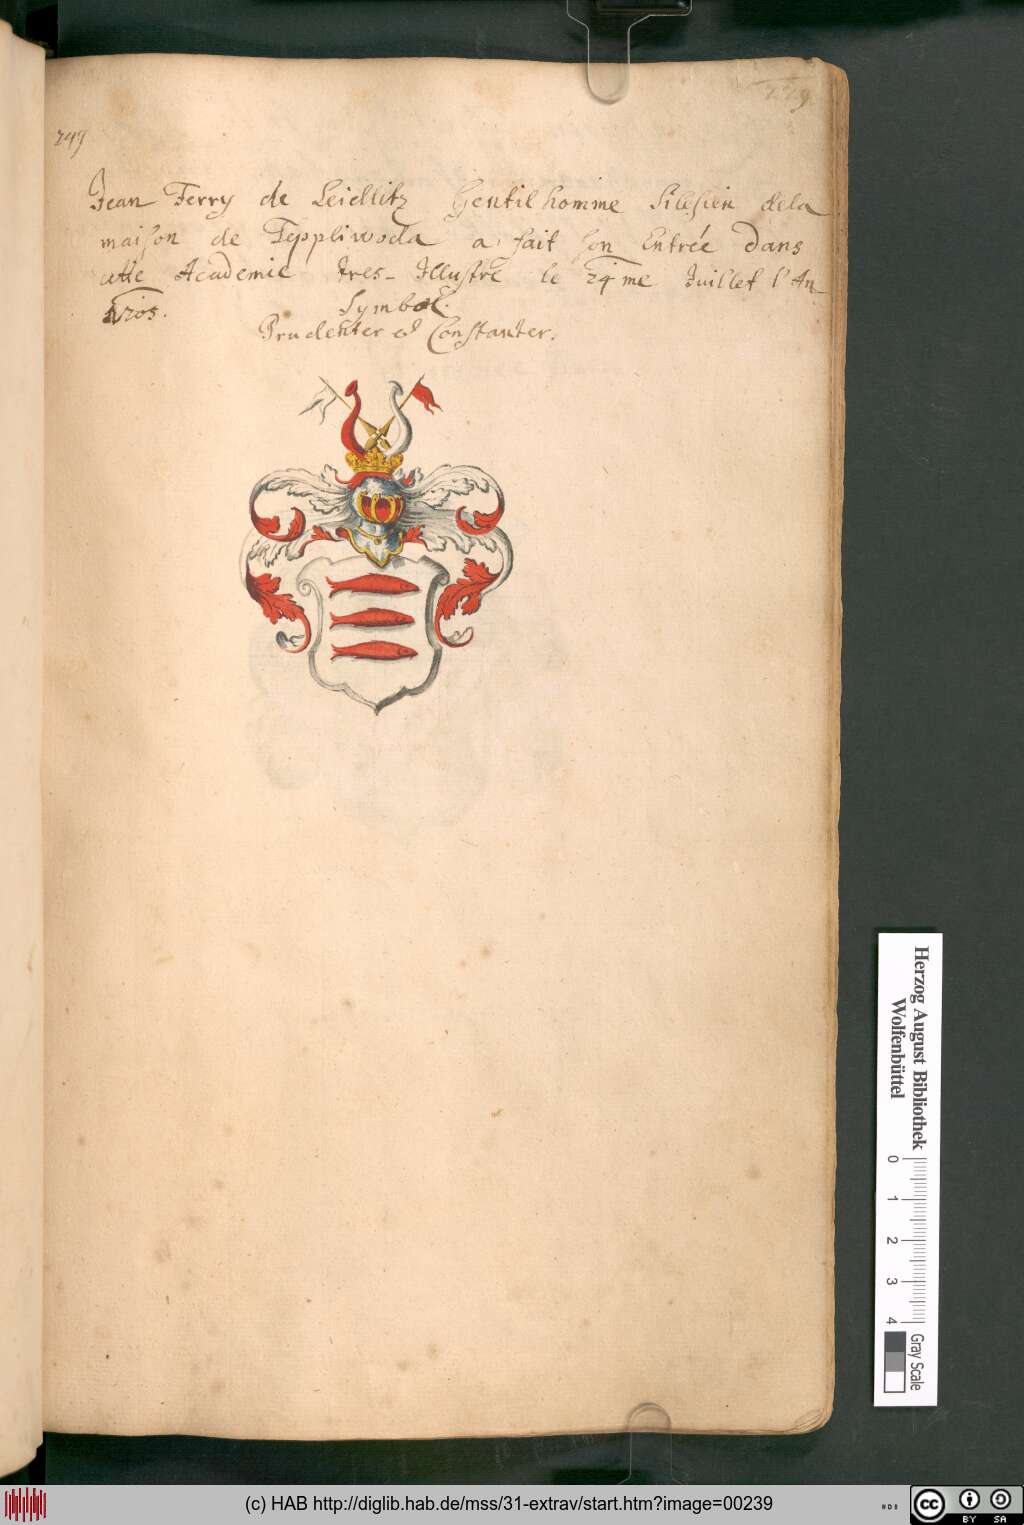 229
249
Jean Ferry de Seidlitz Gentilhomme Silesien dela
maison de Teppliwoda a fait son Entrée dans
cette Academie tres-Illustre le 24 me Juillet l'An
1705.
Symbol.
Prudenter et Constanter.
Herzog August Bibliothek
Wolfenbüttel
0 1 2 3 4
Gray Scale
(c) HAB http://diglib.hab.de/mss/31-extrav/start.htm?image=00239
cc BY SA